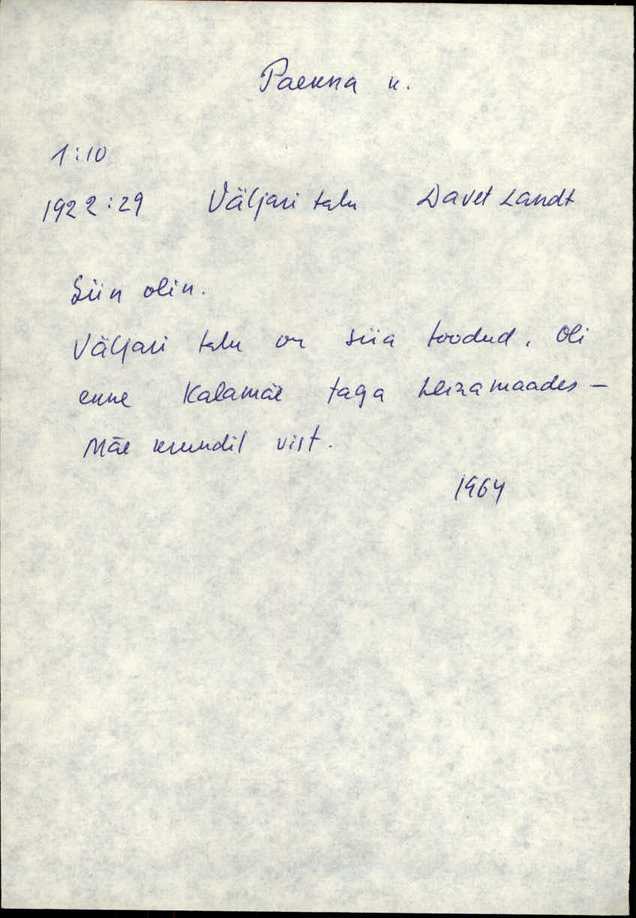 Paenna k.
1:10
1922:29 Väljari talu Davet Landt
Siin olin.
Väljari talu on siia toodud, oli
enne Kalamäe taga
Mäe krundil vist.
1964